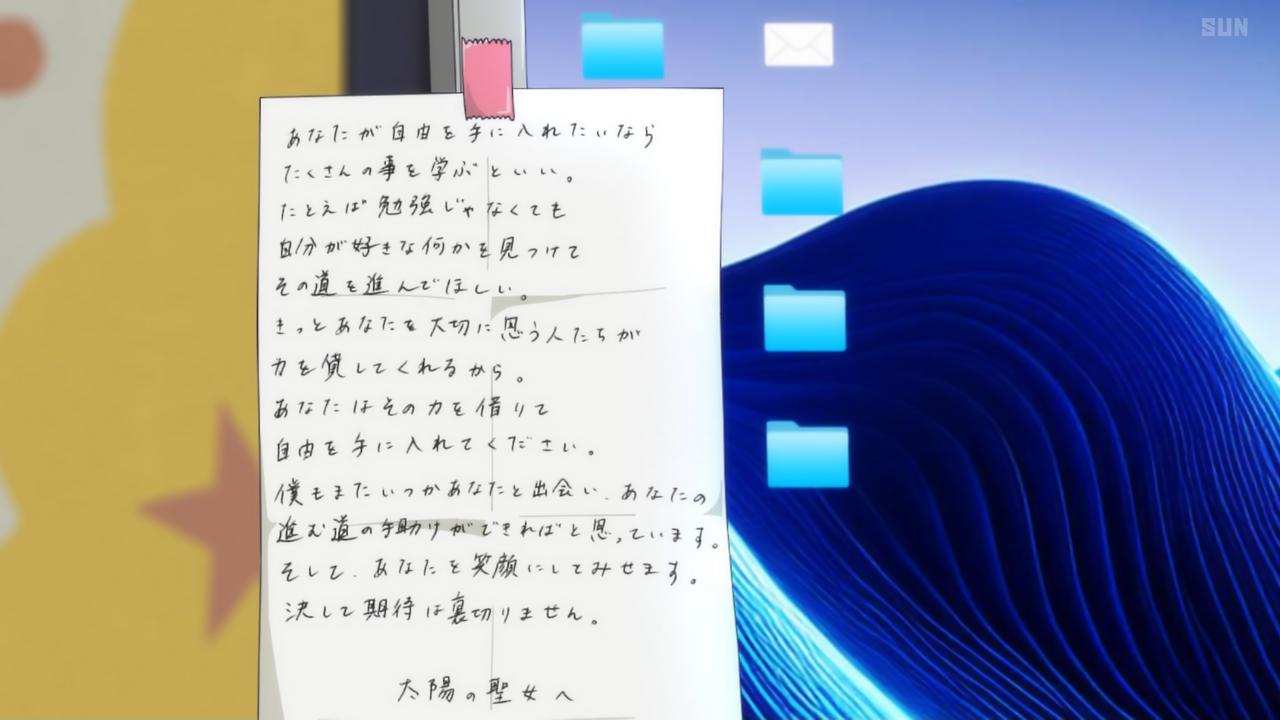 SUN
あなたが自由を手に入れたいなら
たくさんの事を学ぶといい。
たとえば勉強じゃなくても
自分が好きな何かを見つけて
その道を進んでほしい。
きっとあなたを大切に思う人たちが
力を貸してくれるから。
あなたはその力を借りて
自由を手に入れてください。
僕もまたいつかあなたと出会い、あなたの
進む道の手助けができればと思っています。
そして、あなたを笑顔にしてみせます。
決して期待は裏切りません。
太陽の聖女へ